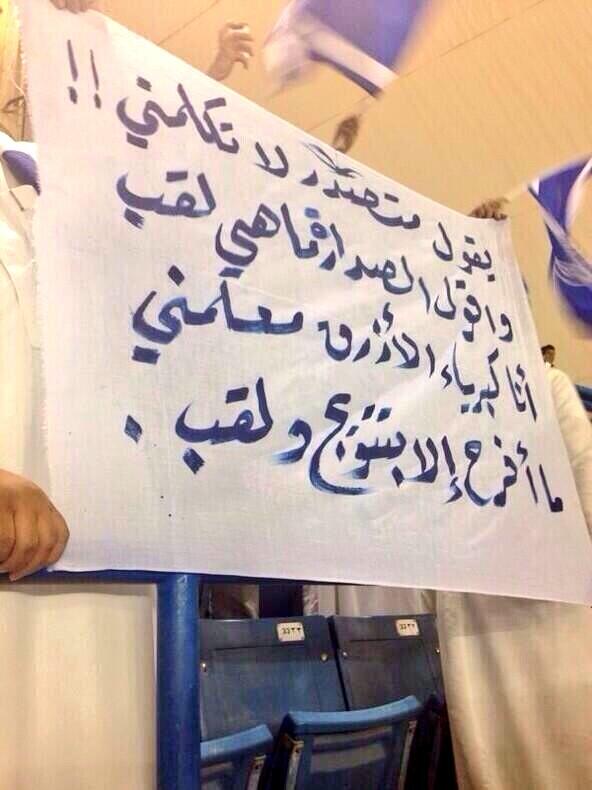 يقول متصدر لا تكلمني !!
واقول الصدارة ما هي لقب
أنا كبرياء الأزرق معلمني
ما أفرح إلا بتتويج ولقب .